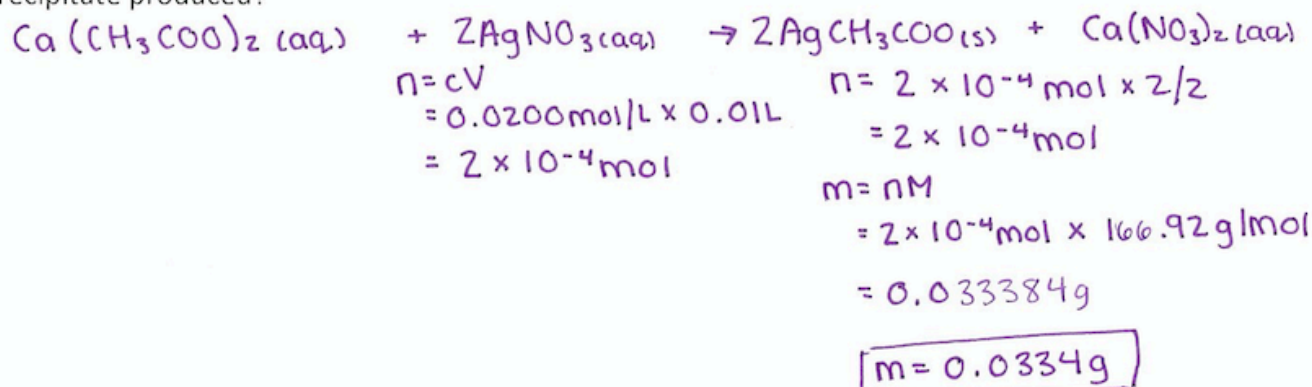 recipitate produced?
Ca(CH₃COO)₂ (aq) + 2AgNO₃(aq) → 2AgCH₃COO(s) + Ca(NO₃)₂ (aq)
n=cV
= 0.0200mol/L × 0.01L
= 2 × 10⁻⁴ mol
n= 2 × 10⁻⁴ mol × 2/2
= 2 × 10⁻⁴ mol
m= nM
= 2×10⁻⁴mol × 166.92g/mol
= 0.033384g
m= 0.0334g